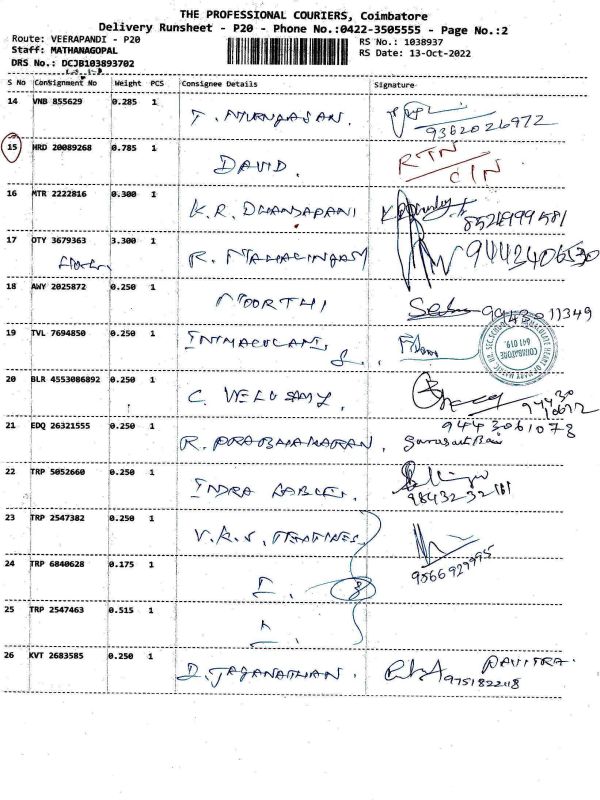 THE PROFESSIONAL COURIERS, Coimbatore
Delivery Runsheet - P20 - Phone No.:0422-3505555 - Page No.:2
Route: VEERAPANDI - P20
RS No.: 1038937
Staff: MATHANAGOPAL
RS Date: 13-Oct-2022
DRS No.: DCJB103893702
S No Consignment No Weight PCS Consignee Details Signature
14 VNB 855629 0.285 1
9362026972
15 HRD 20089268 0.785 1 DAVID. RTN
16 MTR 2222816 0.300 1 K.R. DHANDAPANI
17 OTY 3679363 3.300 1 R. MAHALINGAM 9442406530
18 AWY 2025872 0.250 1 MOORTHI 9943011349
19 TVL 7694850 0.250 1
COIMBATORE
641 019
20 BLR 4553086892 0.250 1 C. VELUSAMY.
21 EDQ 26321555 0.250 1 R. PRABHAKARAN. 9443061073
22 TRP 5052660 0.250 1 INDRA
23 TRP 2547382 0.250 1 V.K.S.
9566929995
24 TRP 6840628 0.175 1
25 TRP 2547463 0.515 1
26 KVT 2683585 0.250 1 D. JAGANATHAN. PAVITRA.